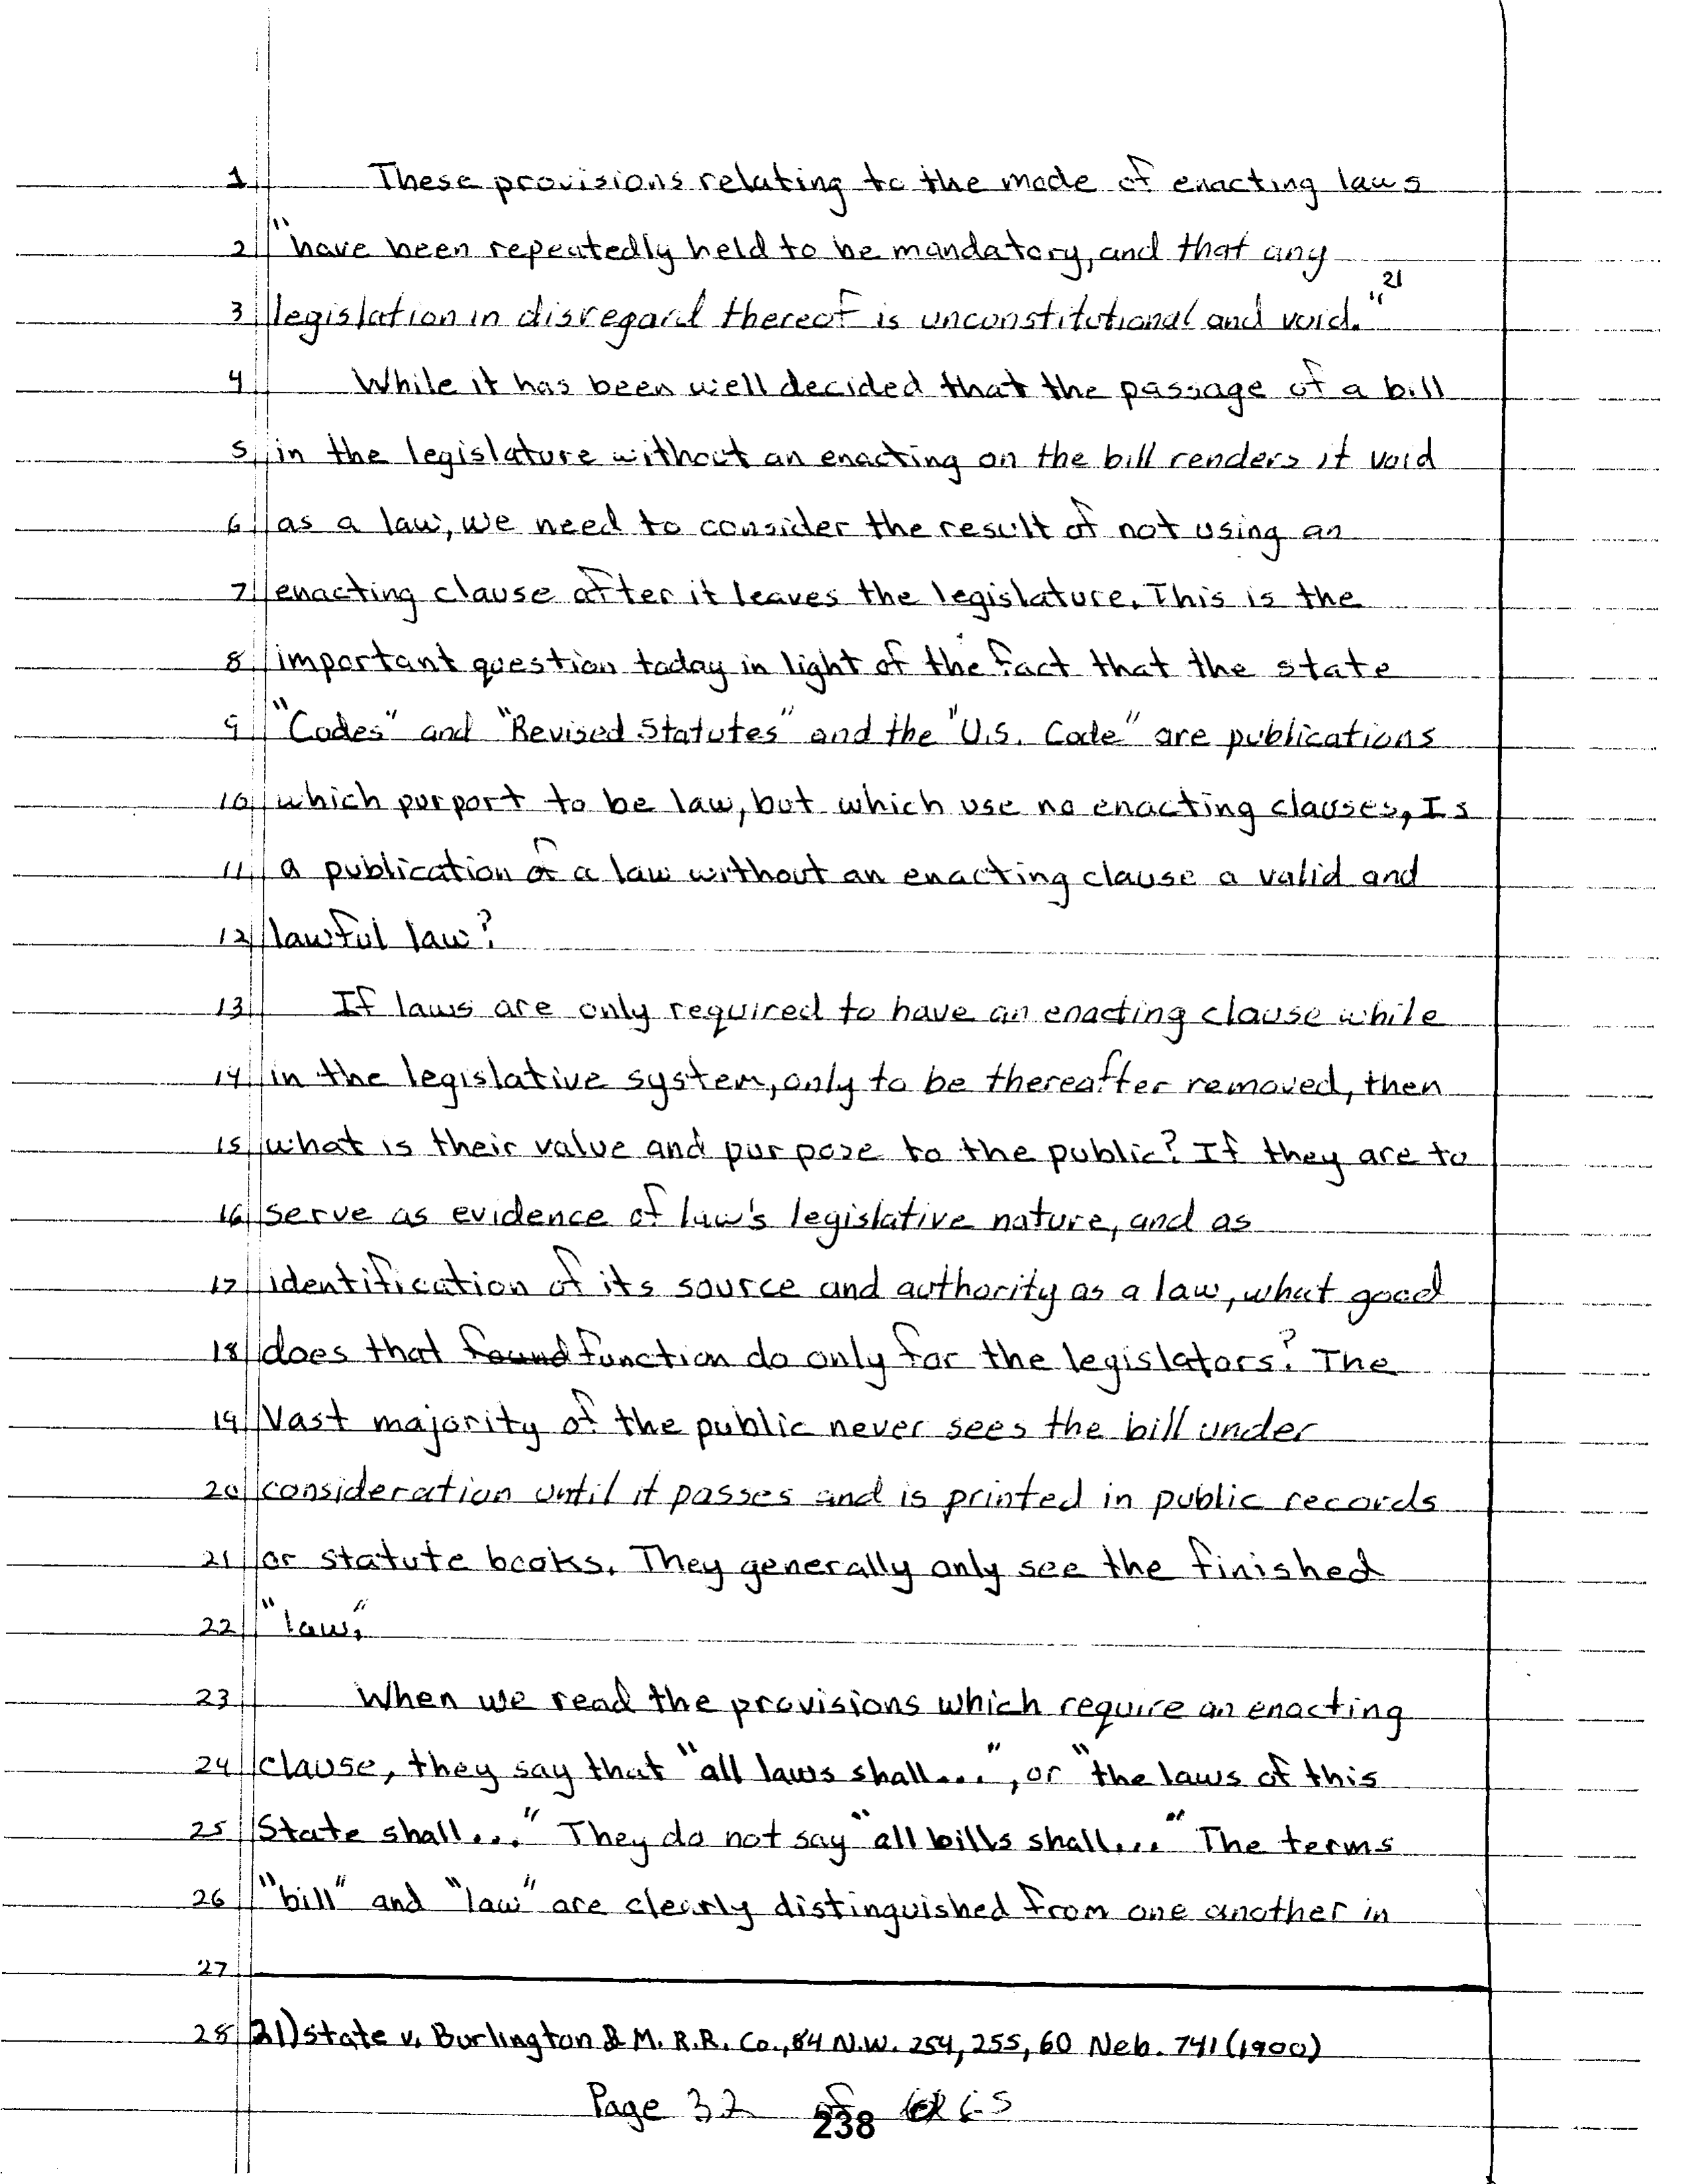 1 These provisions relating to the mode of enacting laws
2 "have been repeatedly held to be mandatory, and that any
3 legislation in disregard thereof is unconstitutional and void."21
4 While it has been well decided that the passage of a bill
5 in the legislature without an enacting on the bill renders it void
6 as a law, we need to consider the result of not using an
7 enacting clause after it leaves the legislature. This is the
8 important question today in light of the fact that the state
9 "Codes" and "Revised Statutes" and the "U.S. Code" are publications
10 which purport to be law, but which use no enacting clauses, Is
11 a publication of a law without an enacting clause a valid and
12 lawful law?
13 If laws are only required to have an enacting clause while
14 in the legislative system, only to be thereafter removed, then
15 what is their value and purpose to the public? If they are to
16 serve as evidence of law's legislative nature, and as
17 identification of its source and authority as a law, what good
18 does that found function do only for the legislators? The
19 Vast majority of the public never sees the bill under
20 consideration until it passes and is printed in public records
21 or statute books. They generally only see the finished
22 "law."
23 When we read the provisions which require an enacting
24 clause, they say that "all laws shall...", or "the laws of this
25 State shall..." They do not say "all bills shall..." The terms
26 "bill" and "law" are clearly distinguished from one another in
27
28 21) State v. Burlington & M. R.R. Co., 84 N.W. 254, 255, 60 Neb. 741 (1900)
Page 32 of 65
238